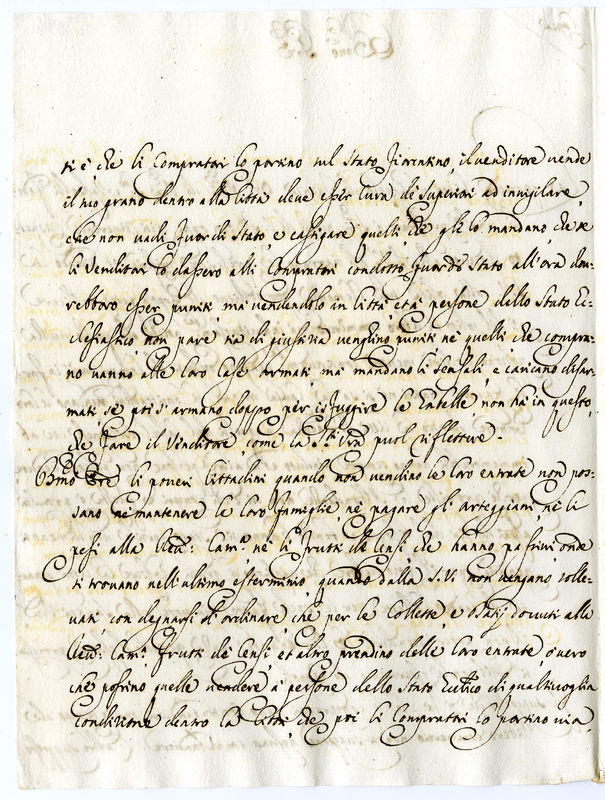 ti è che li Compratori lo portino sul Stato Fiorentino, il venditore vende
il suo grano dentro alla Città deve esser cura de Superiori ad invigilare,
che non vadi fuor di Stato, e castigare quelli, che gle lo mandano, che se
li Venditori lo dassero alli Compratori condotto fuor di Stato all'ora dou-
rebbero esser puniti, ma vendendolo in Città, et à persone dello Stato Ec-
clesiastico, non pare sia di giustizia venghino puniti, nè quelli, che compra-
no vanno alle loro Case armati, ma mandano li Sensali, e caricano disar-
mati, se poi s'armano doppo, per isfuggire le Gabelle non hà in questo,
che fare il Venditore, come la S.tà Vra puol riflettere.
Bmo Pre li poveri Cittadini quando non vendino le loro entrate non pos-
sano nè mantenere le loro famiglie, nè pagare gli arteggiani, nè li
pesi alla Reu: Cam.a, nè li frutti de Censi, che hanno passivi, onde
si trovano nell'ultimo esterminio, quando dalla S. V. non vengano solle-
vati, con degnarsi d'ordinare, che per le Collette, e Datij dovuti alla
Reu: Cam.a, frutti de Censi, et altro prendino delle loro entrate, overo
che possino quelle vendere à persone dello Stato Eccl.co di qualsivoglia
Conditione dentro la Città, che poi li Compratori lo portino via,